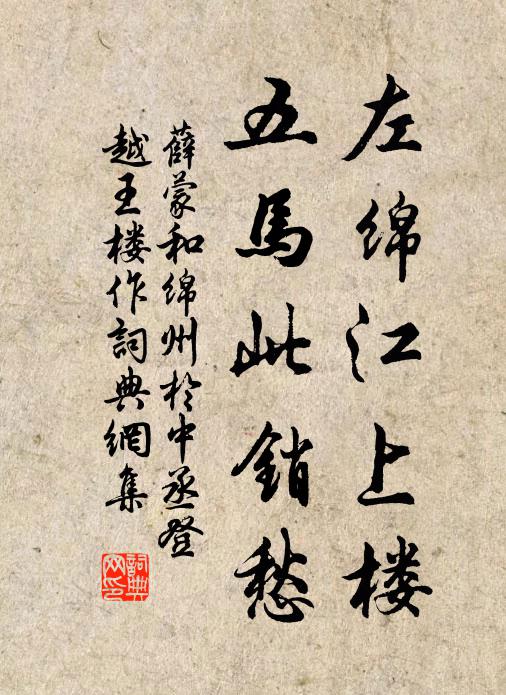 左绵江上楼
五馬此銷愁
薛蒙和绵州於中丞登
越王楼作詞典網集
詞典
网印